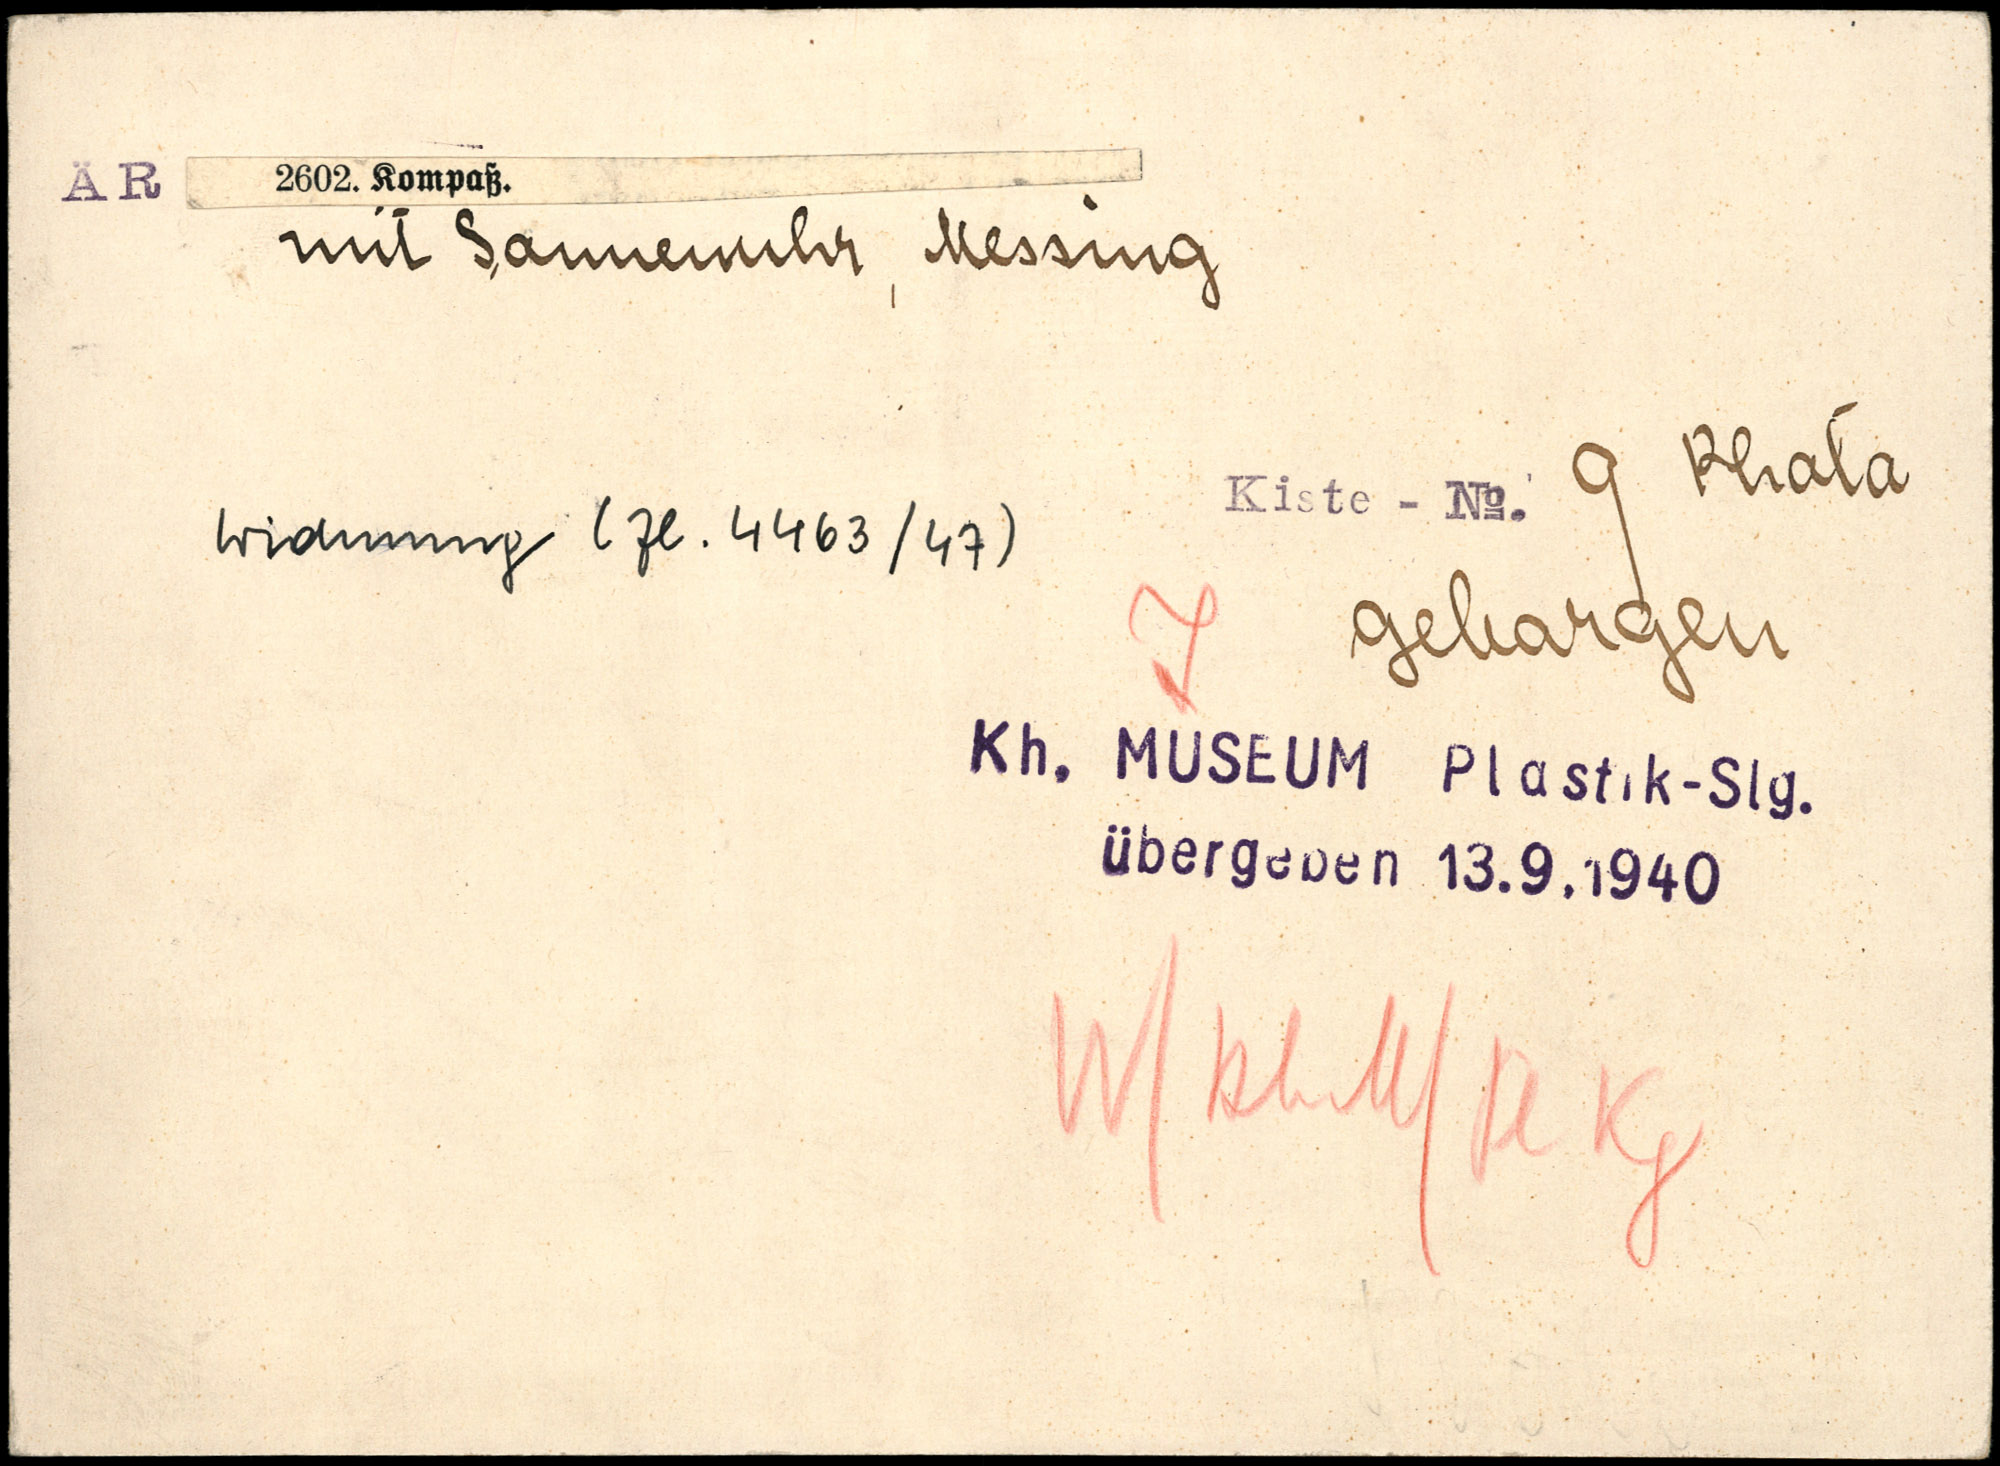 ÄR 2602. Kompaß.
mit Sonnenuhr, Messing
Kiste - No. 9 Khata
Widmung (Zl. 4463/47)
geborgen
Kh. MUSEUM Plastik-Slg.
übergeben 13.9.1940
W/ KhM/ Pl Kg